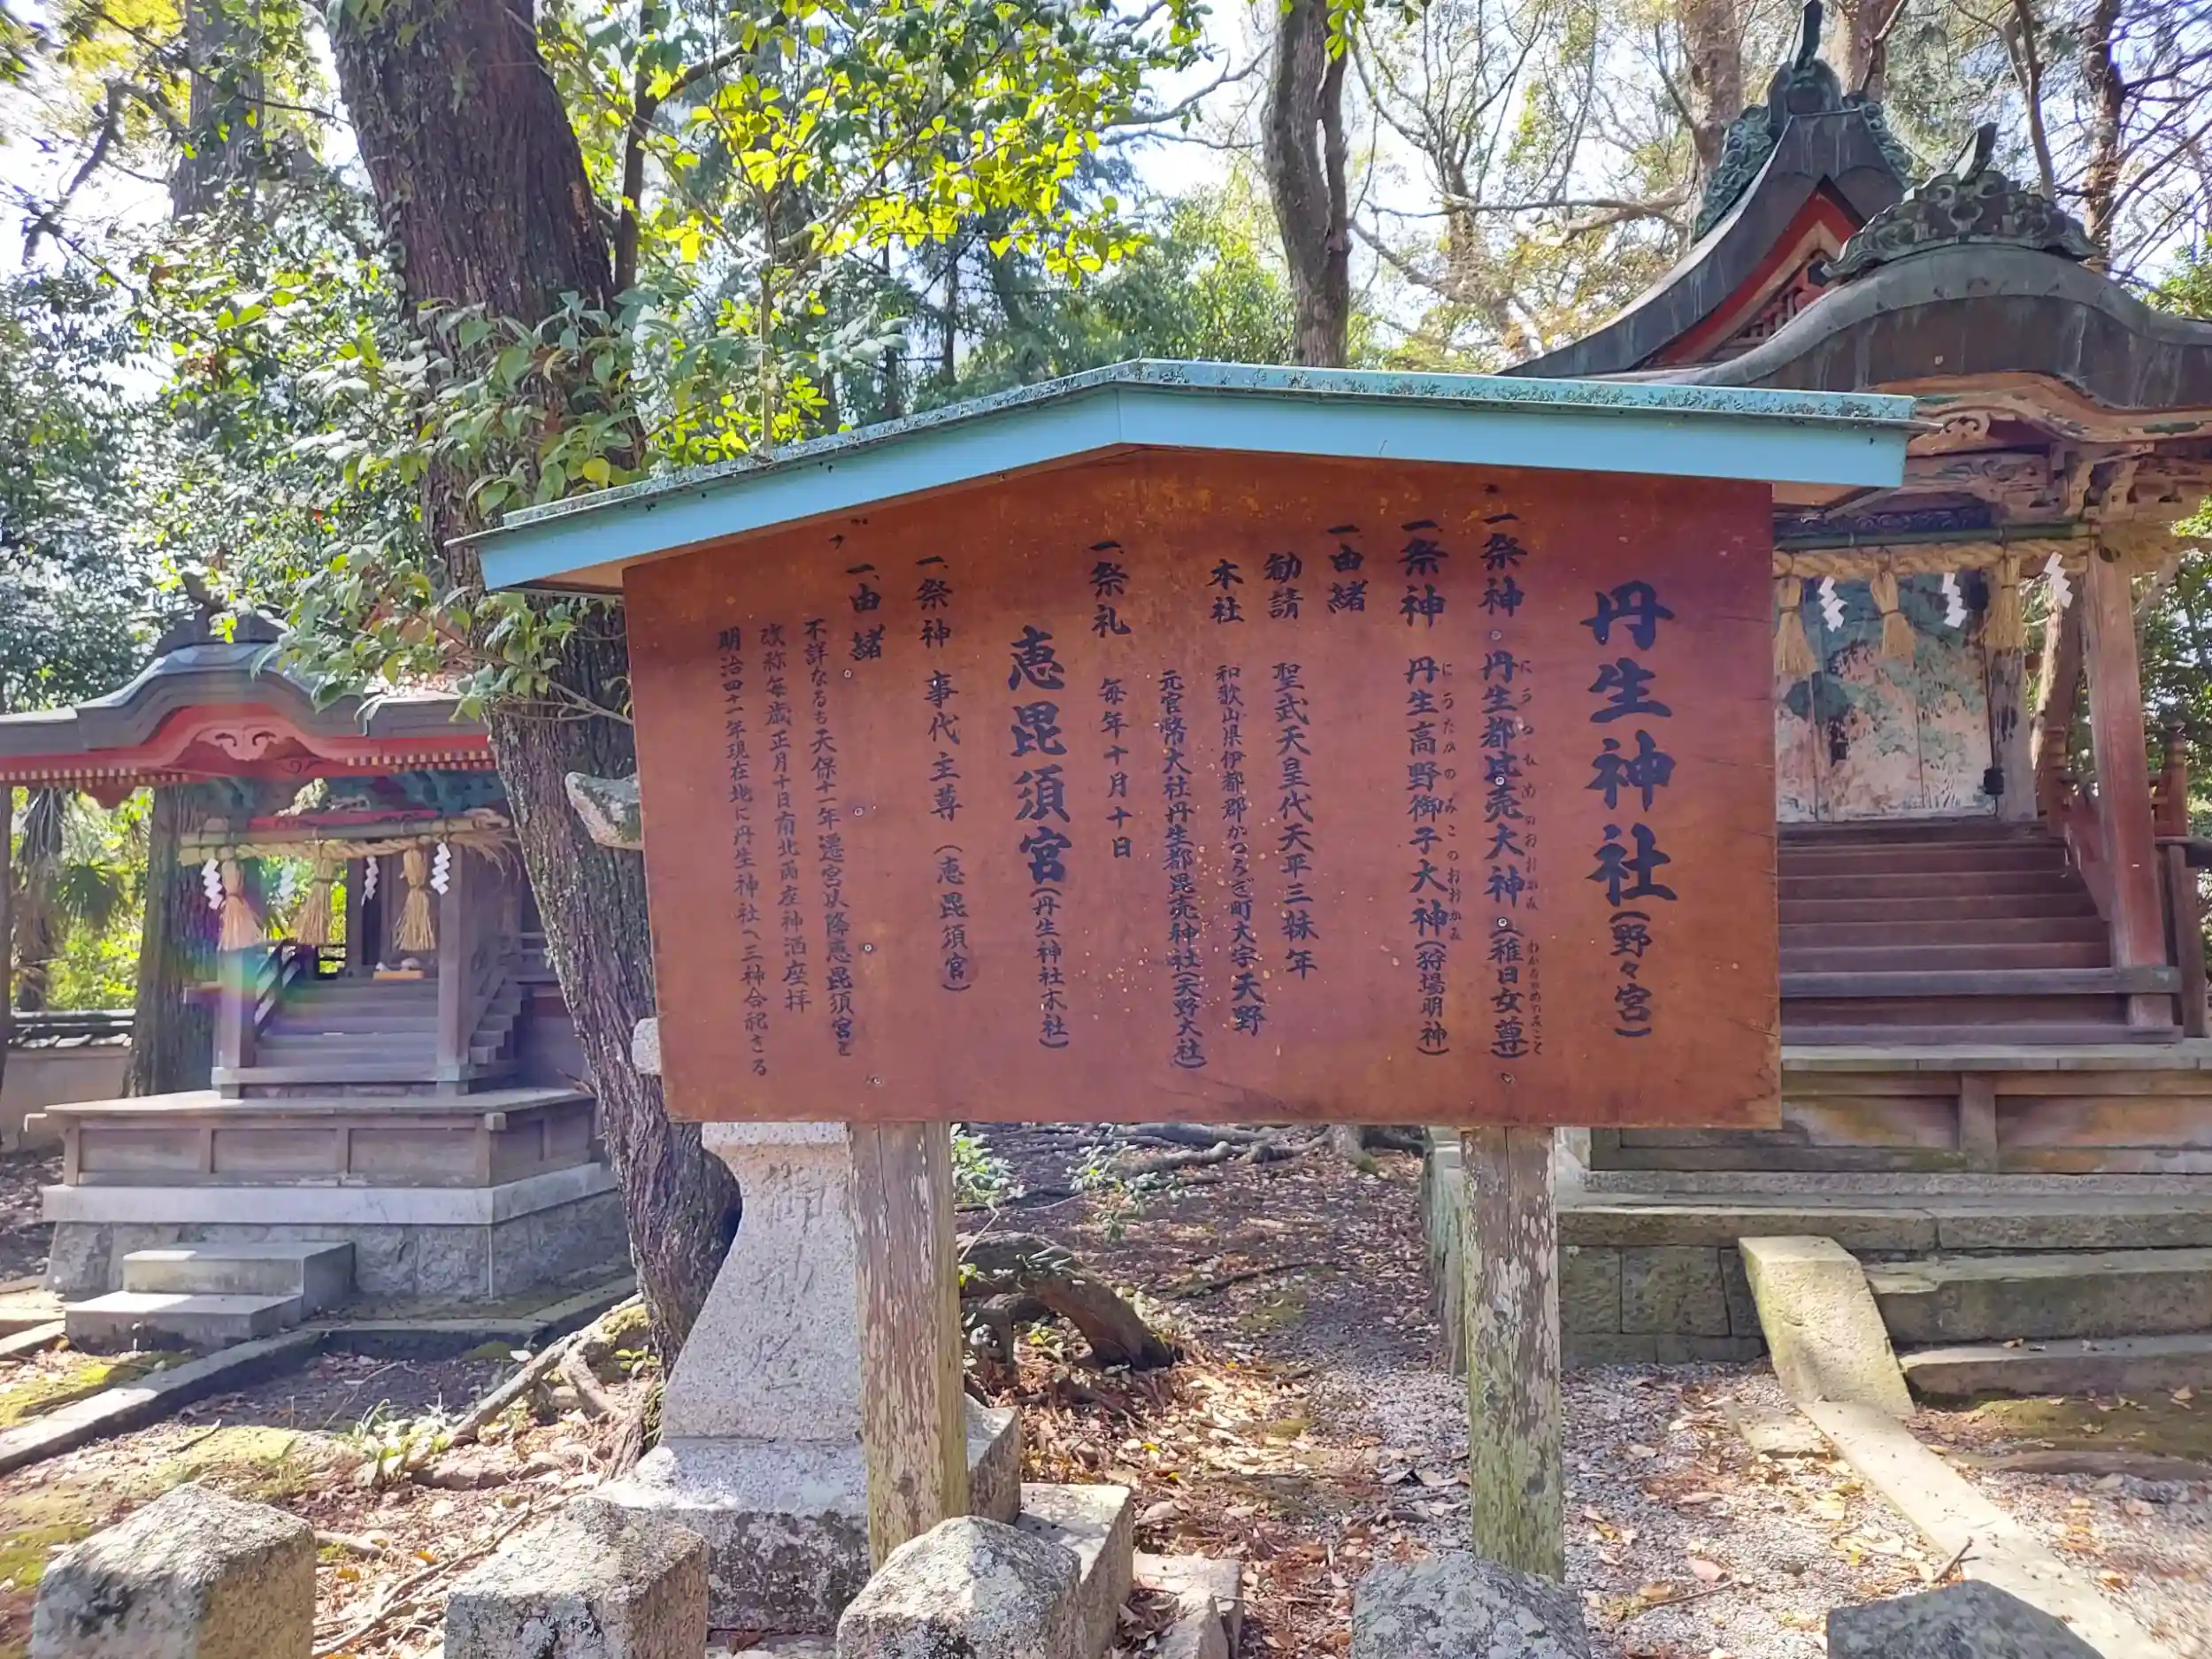 丹生神社(野々宮)
一、祭神 丹生都比売大神(稚日女尊)
にうつひめのおおかみ わかひるめのみこと
一、祭神 丹生高野御子大神(狩場明神)
にうたかのみこのおおかみ
一、由緒
勧請 聖武天皇代天平三年
本社 和歌山県伊都郡かつらぎ町大字天野
元官幣大社丹生都毘売神社(天野大社)
一、祭礼 毎年十月十日
恵毘須宮(丹生神社末社)
一、祭神 事代主尊(恵毘須宮)
一、由緒
不詳なるも天保十一年遷宮以降恵毘須宮と
改称毎歳正月十日南北両座神酒座拝
明治四十一年現在地に丹生神社へ三神合祀さる
御神燈